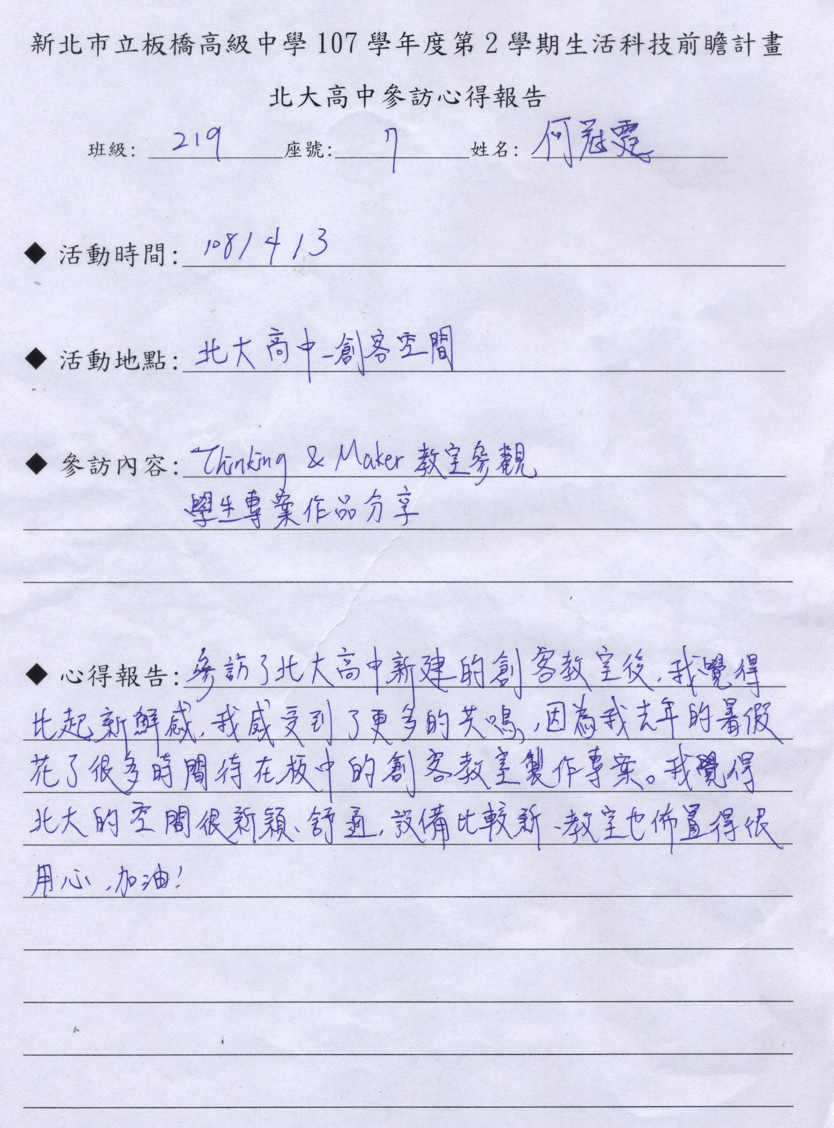 新北市立板橋高級中學 107 學年度第 2 學期生活科技前瞻計畫
北大高中參訪心得報告
班級: 219 座號: 7 姓名: 何冠霆
◆ 活動時間: 108/4/13
◆ 活動地點: 北大高中-創客空間
◆ 參訪內容: Thinking & Maker 教室參觀
學生專案作品分享
◆ 心得報告: 參訪了北大高中新建的創客教室後,我覺得
比起新鮮感,我感受到了更多的共鳴,因為我去年的暑假
花了很多時間待在板中的創客教室製作專案。我覺得
北大的空間很新穎、舒適,設備比較新、教室也佈置得很
用心,加油!